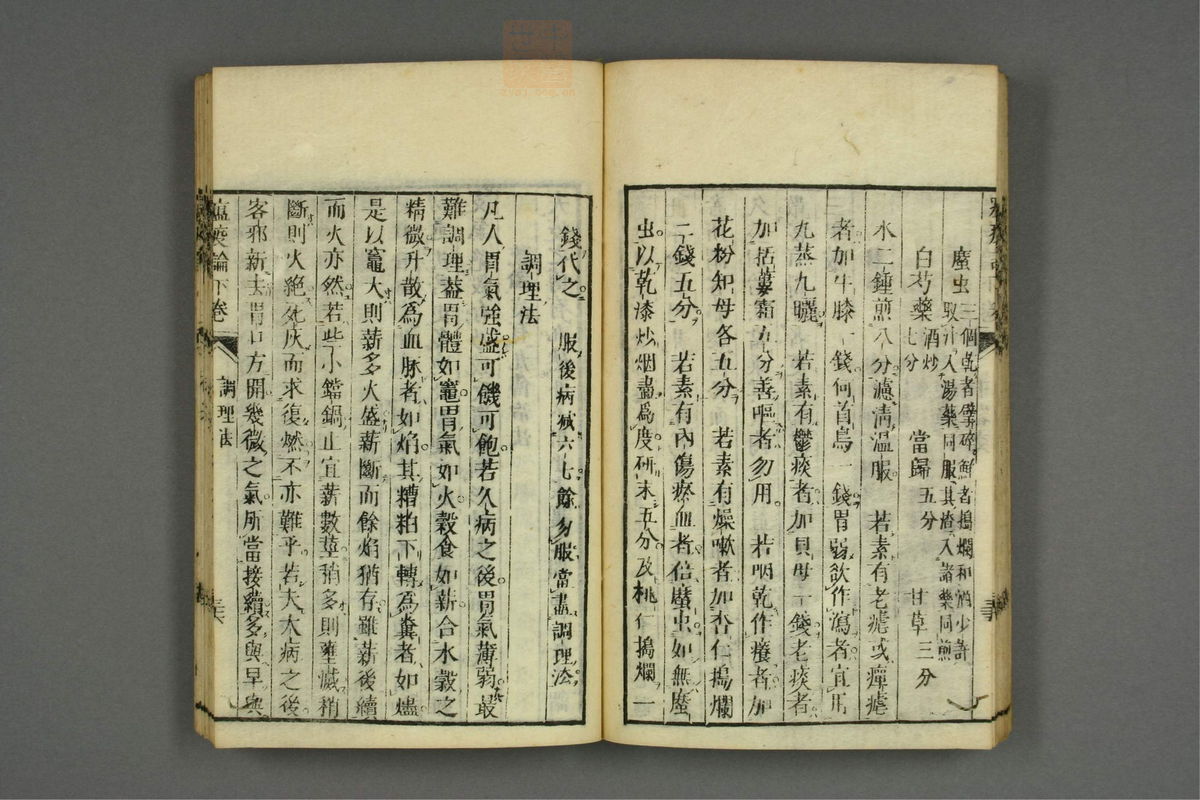 䗪虫 三個乾者擘碎鮮者搗爛和酒少許
取汁入湯藥同服其渣入諸藥同煎
白芍藥 酒炒七分 當歸 五分 甘草 三分
水二鍾煎八分濾清溫服 若素有老瘧或癉瘧
者加牛膝一錢何首烏一錢胃弱欲作瀉者宜用
九蒸九曬 若素有鬱痰者加貝母一錢老痰者
加括蔞霜五分善嘔者勿用 若咽乾作癢者加
花粉知母各五分 若素有燥嗽者加杏仁搗爛
一錢五分 若素有內傷瘀血者倍䗪虫如無䗪
虫以乾漆炒烟盡為度研末五分及桃仁搗爛一
錢代之 服後病減六七餘勿服當盡調理法
調理法
凡人胃氣強盛可饑可飽若久病之後胃氣薄弱最
難調理葢胃體如竈胃氣如火穀食如薪合水穀之
精微升散為血脉者如焰其糟粕下轉為糞者如燼
是以竈大則薪多火盛薪斷而餘焰猶存雖薪後續
而火亦然若些小鐺鍋止宜薪數莖稍多則壅滅稍
斷則火絕死灰而求復燃不亦難乎若夫大病之後
客邪新去胃口方開幾微之氣所當接續多與早與
瘟疫論下卷 調理法